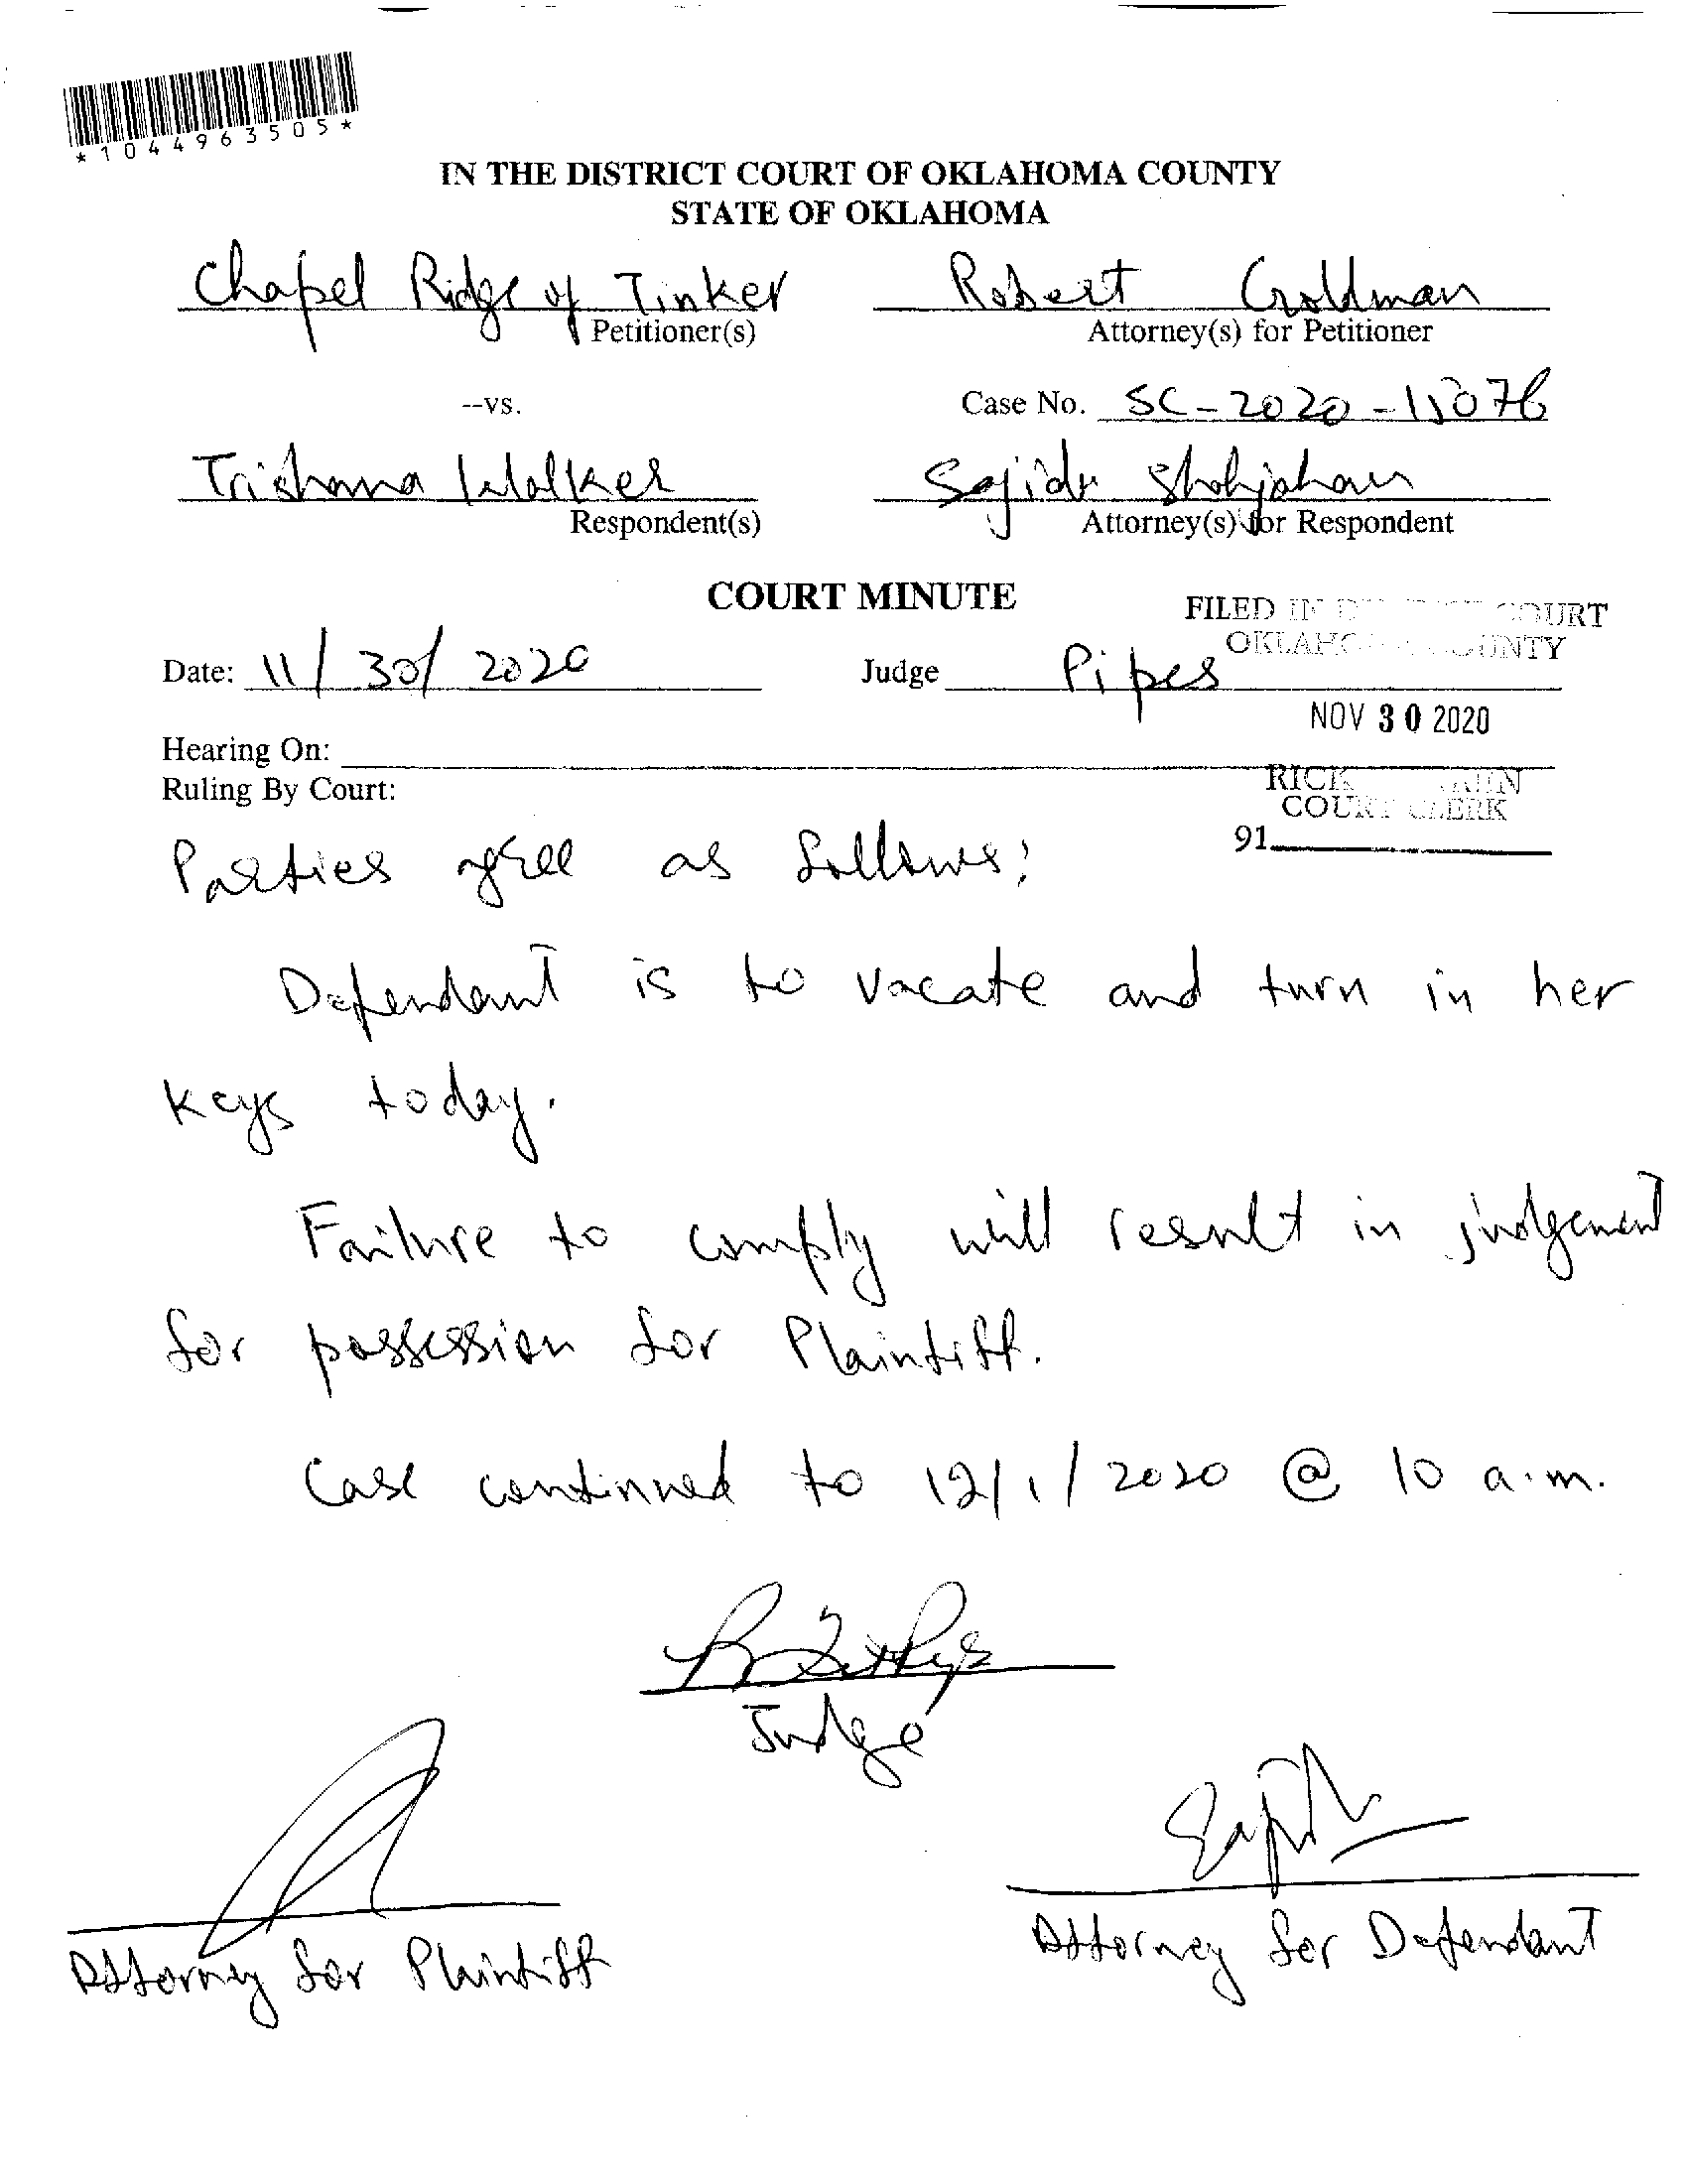 *1044963505*
IN THE DISTRICT COURT OF OKLAHOMA COUNTY
STATE OF OKLAHOMA
Chapel Ridge of Tinker Robert Goldman
Petitioner(s) Attorney(s) for Petitioner
--vs. Case No. SC-2020-15076
Trishana Walker Sajida Shahjahan
Respondent(s) Attorney(s) for Respondent
COURT MINUTE
FILED IN COURT
OKLAHO UNTY
Date: 11/30/2020 Judge Pipes
NOV 30 2020
Hearing On:
Ruling By Court:
RICK
COURT CLERK
91
Parties agree as follows:
Defendant is to vacate and turn in her
keys today.
Failure to comply will result in judgement
for possession for Plaintiff.
Case continued to 12/1/2020 @ 10 a.m.
Judge
Attorney for Plaintiff Attorney for Defendant